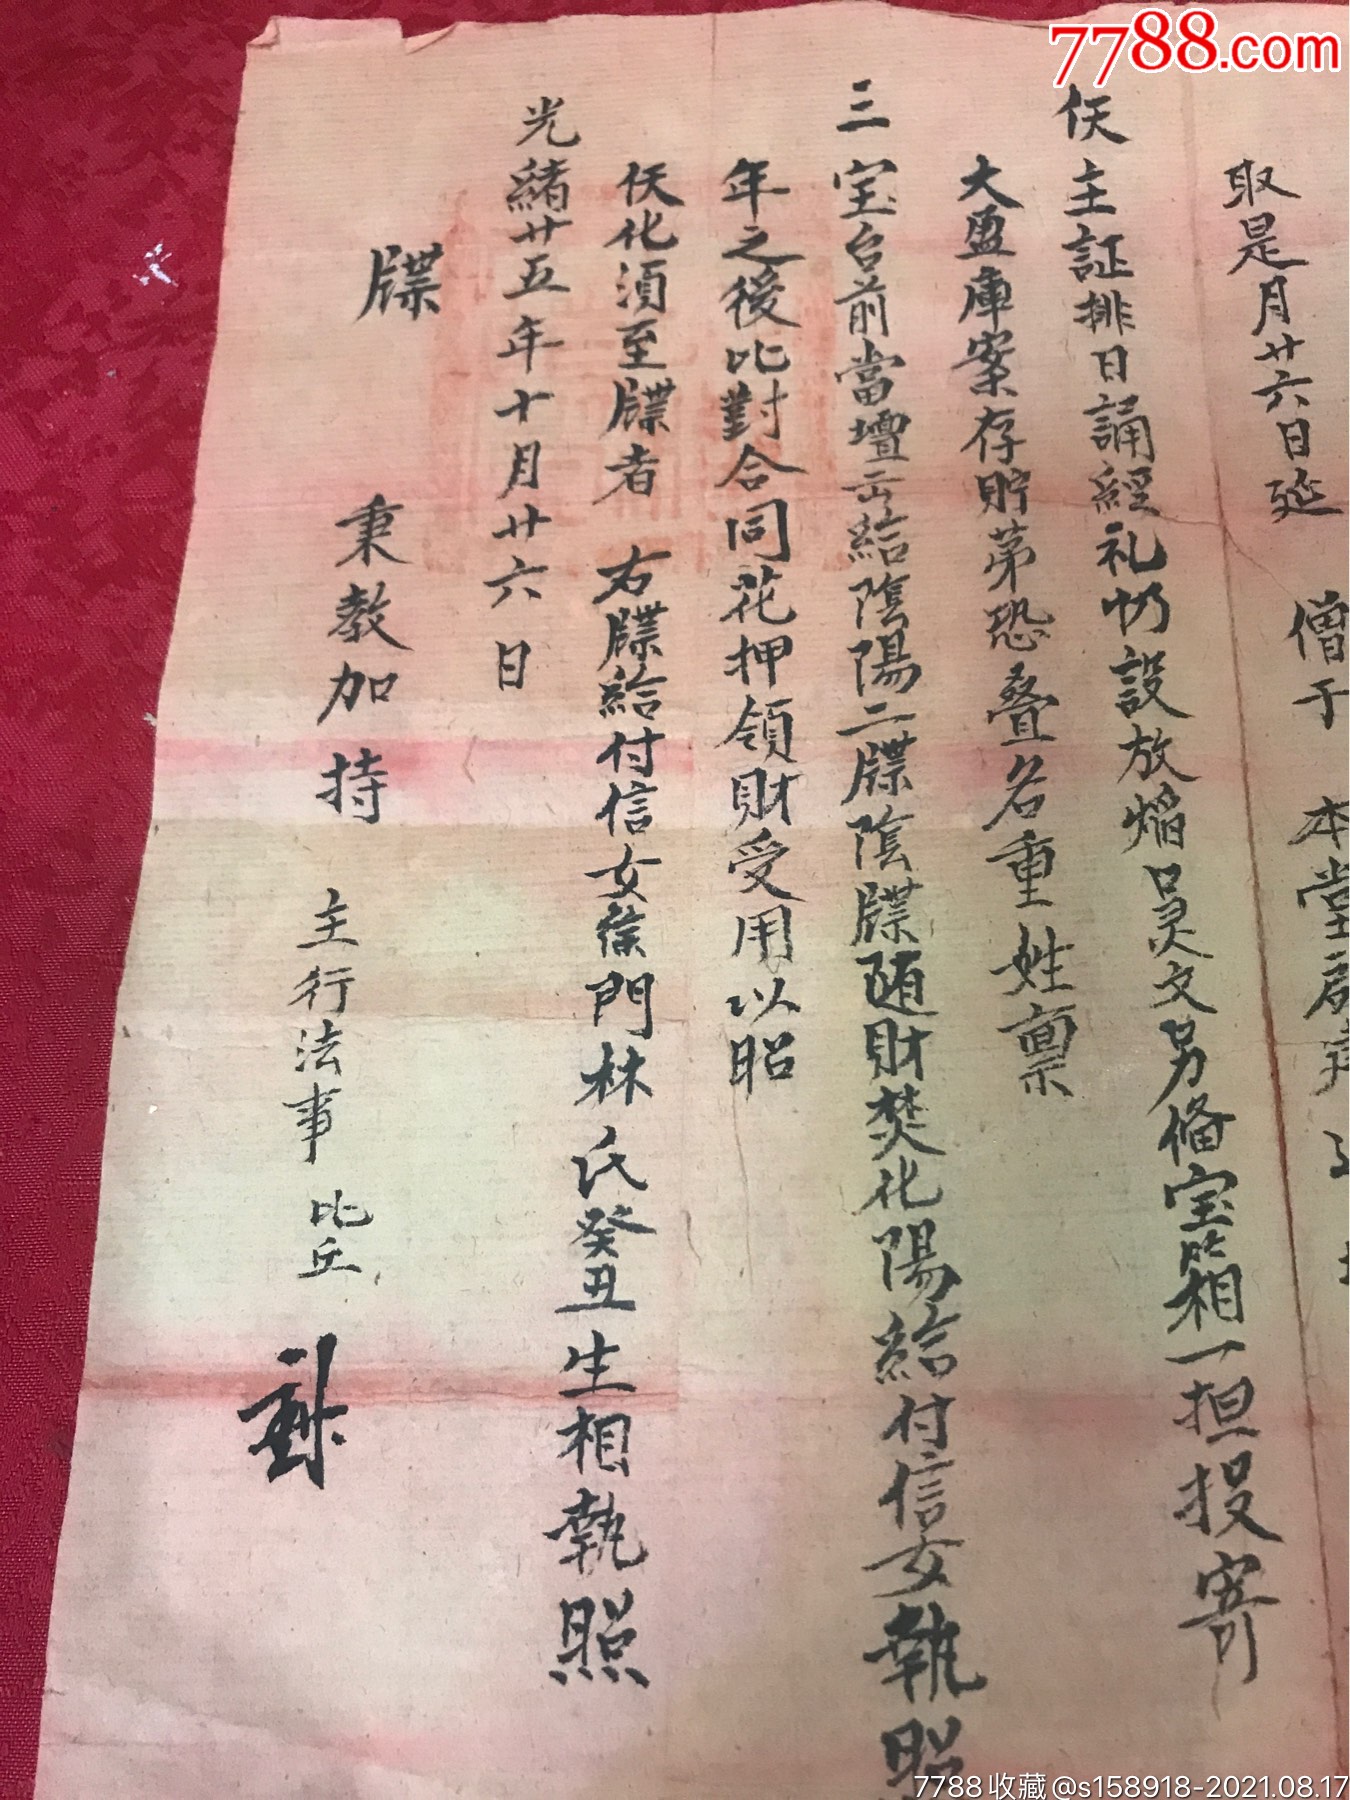 7788.com
取是月廿六日延 僧于 本堂
仸主証排日誦經礼忏設放焰口灵文另俻宝箱一担投寄
大盈庫案存貯苐恐叠名重姓禀
三宝台前當壇出給陰陽二牒陰牒随財焚化陽給付信女執照
年之後比對合同花押領財受用以昭
仸化須至牒者 右牒給付信女徐門林氏癸丑生相執照
光緒廿五年十月廿六日
牒 秉教加持 主行法事 比丘
7788收藏@s158918-2021.08.17